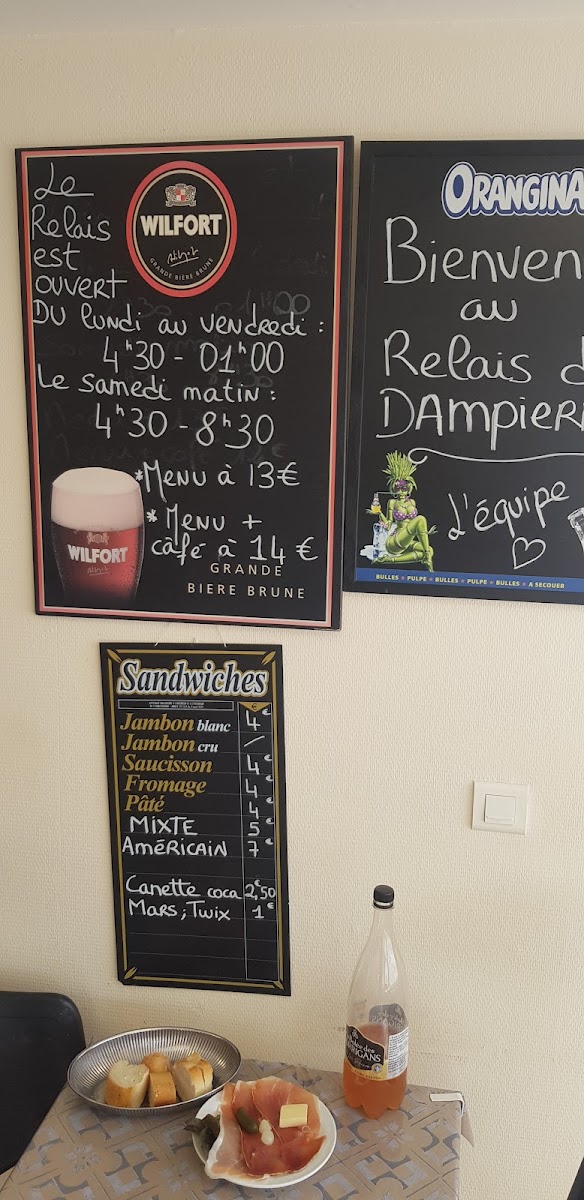 WILFORT
GRANDE BIERE BRUNE
Le
Relais
est
ouvert
DU lundi au vendredi :
4h30 - 01h00
Le samedi matin :
4h30 - 8h30
*MENU à 13€
*MENU +
café à 14€
WILFORT
GRANDE
BIERE BRUNE
ORANGINA
Bienven
au
Relais d
DAmpier
L'équipe
BULLES ★ PULPE ★ BULLES ★ PULPE ★ BULLES ★ A SECOUER
Sandwiches
€
Jambon blanc 4€
Jambon cru /
Saucisson 4€
Fromage 4€
Pâté 4€
MIXTE 5€
AméRICAIN 7€
Canette coca 2€,50
Mars; Twix 1€